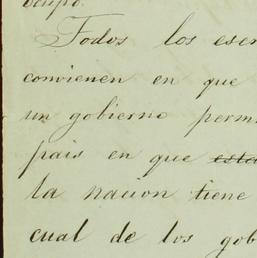 ocupo.
Todos los escr
convienen en que
un gobierno perm
pais en que esta
la nacion tiene
cual de los gob